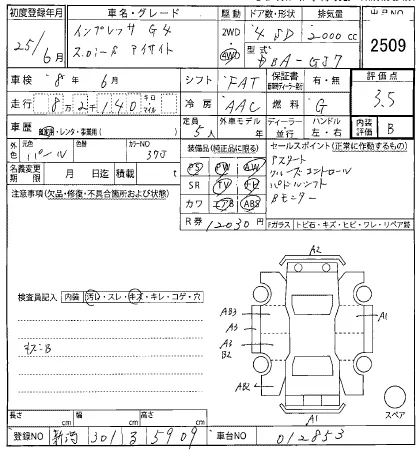 初度登録年月 車名・グレード 駆動 ドア数・形状 排気量 出品NO
25年6月 インプレッサ G4 2WD 4WD 4 SD 2000 cc 2509
2.0i-S アイサイト 型式 DBA-GJ7
車検 8年 6月 シフト FAT 保証書 有・無 評価点 3.5
走行 8万2千140 キロ マイル 冷房 AAC 燃料 G
車歴 レンタ・事業用 定員 5人 外車モデル年 ディーラー 並行 ハンドル 左・右 内装評価 B
外色 元色 パール 色替 カラーNO 37J 装備品(純正品に限る) セールスポイント(正常に作動するもの)
名義変更期限 月 日迄 積載 t PS PW AW
注意事項(欠品・修復・不具合箇所および状態) SR TV
カワ エアB ABS
R券 12030円
Pスタート
クルーズコントロール
パドルシフト
Bモニター
Fガラス トビ石・キズ・ヒビ・ワレ・リペア跡
検査員記入 内装 汚れ・スレ・キズ・キレ・コゲ・穴
キズB
A2
AB3
A3
A3
B2
A1
AB2
A1
スペア
長さ cm 幅 cm 高さ cm
登録NO 新潟 301 ま 5909 車台NO 012853